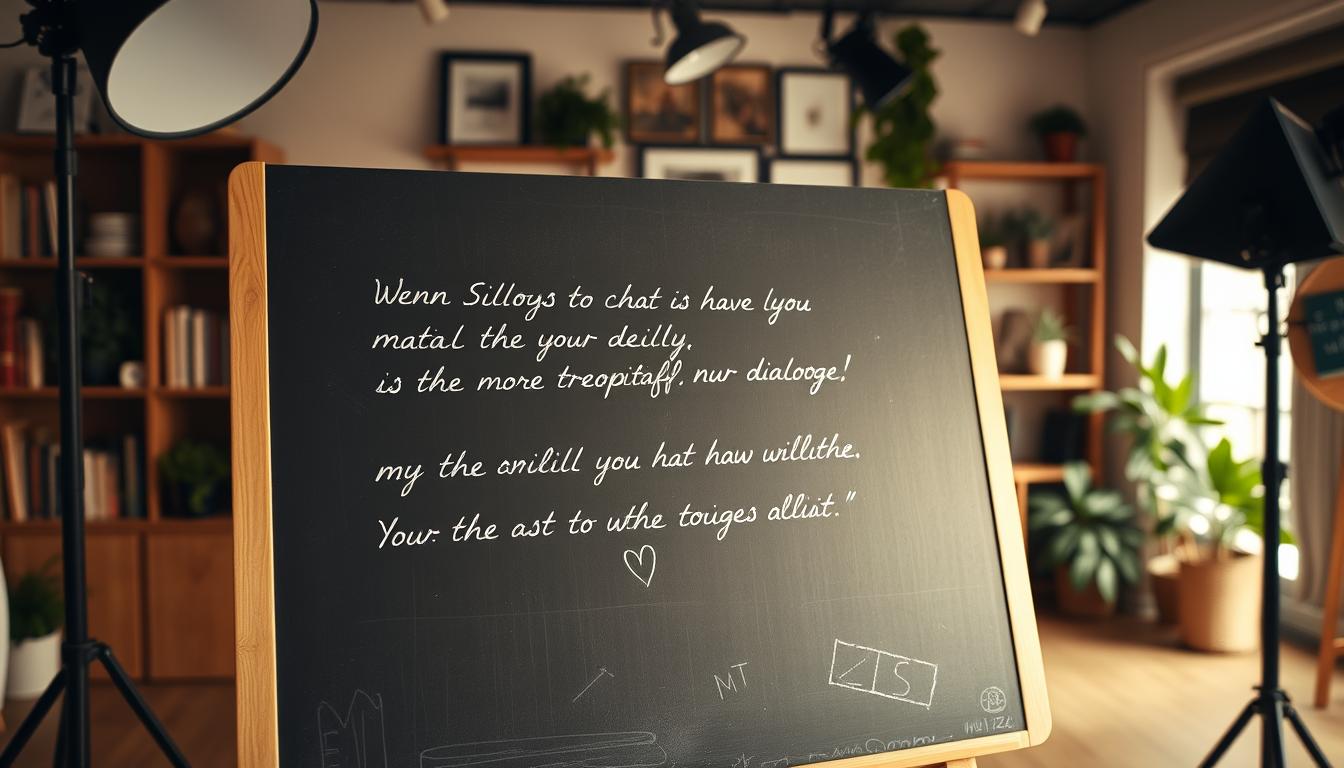 Wenn Silloys to chat is have lyou
matal the your deilly.
is the more treopitaff. nur dialooge!
my the anilill you hat haw willithe.
Your the ast to uthe touiges alliat."
MT
ZS